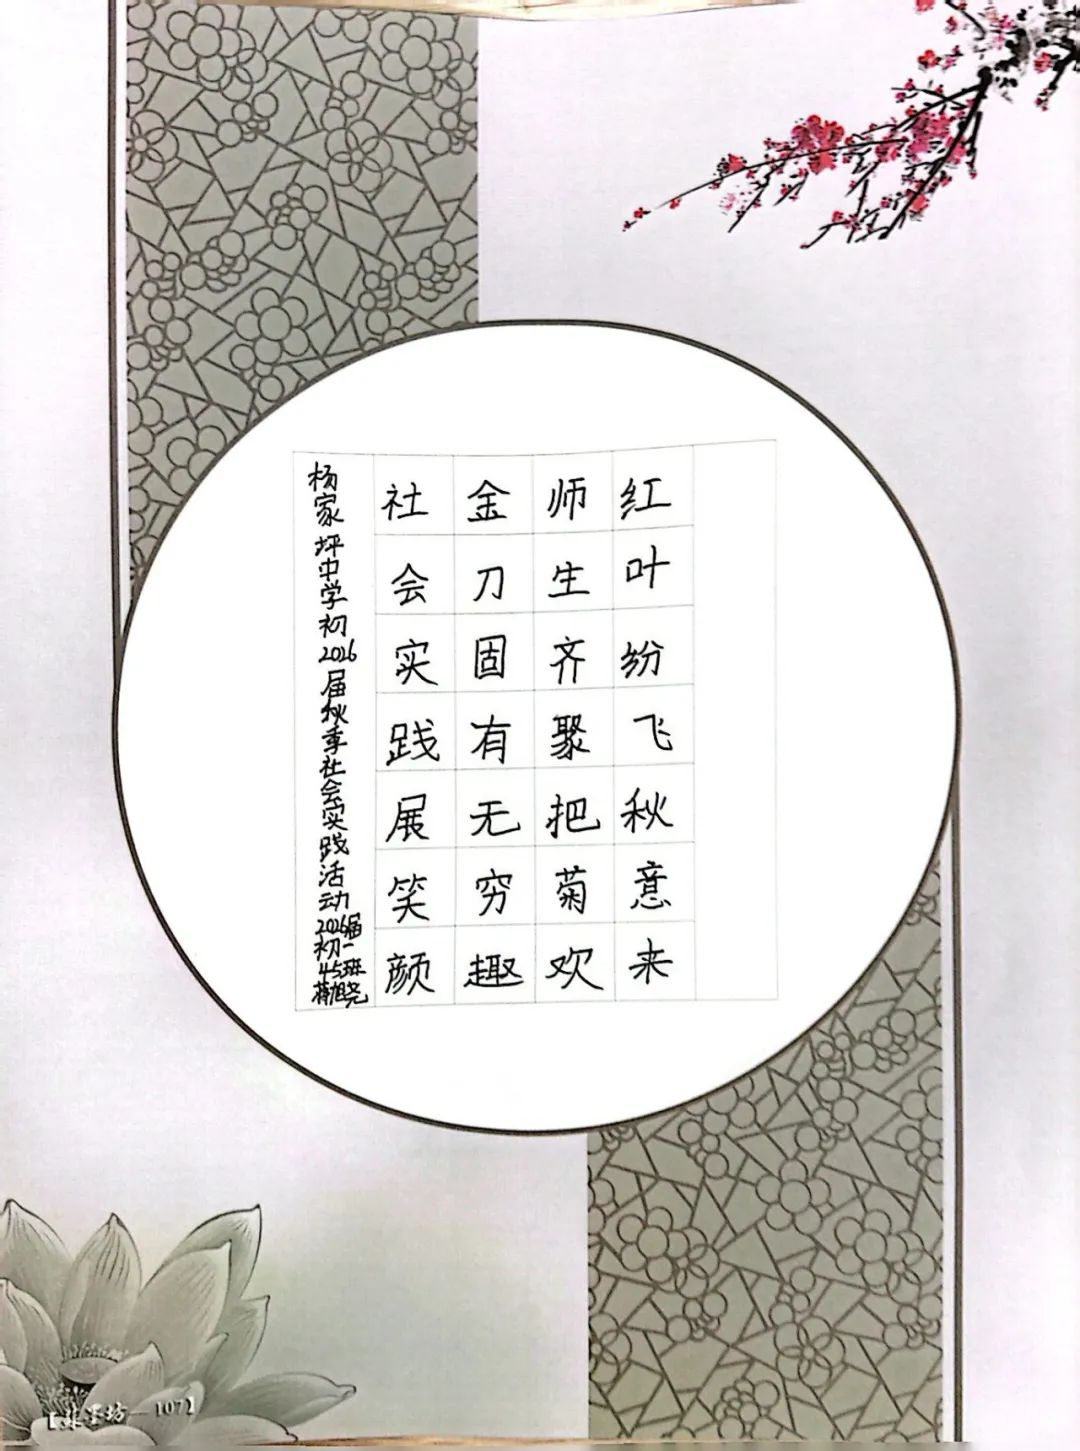 红叶纷飞秋意来
师生齐聚把菊欢
金刀固有无穷趣
社会实践展笑颜
杨家坪中学初2026届秋季社会实践活动2026届初一45班蒋旭尧
【·墨坊—107】